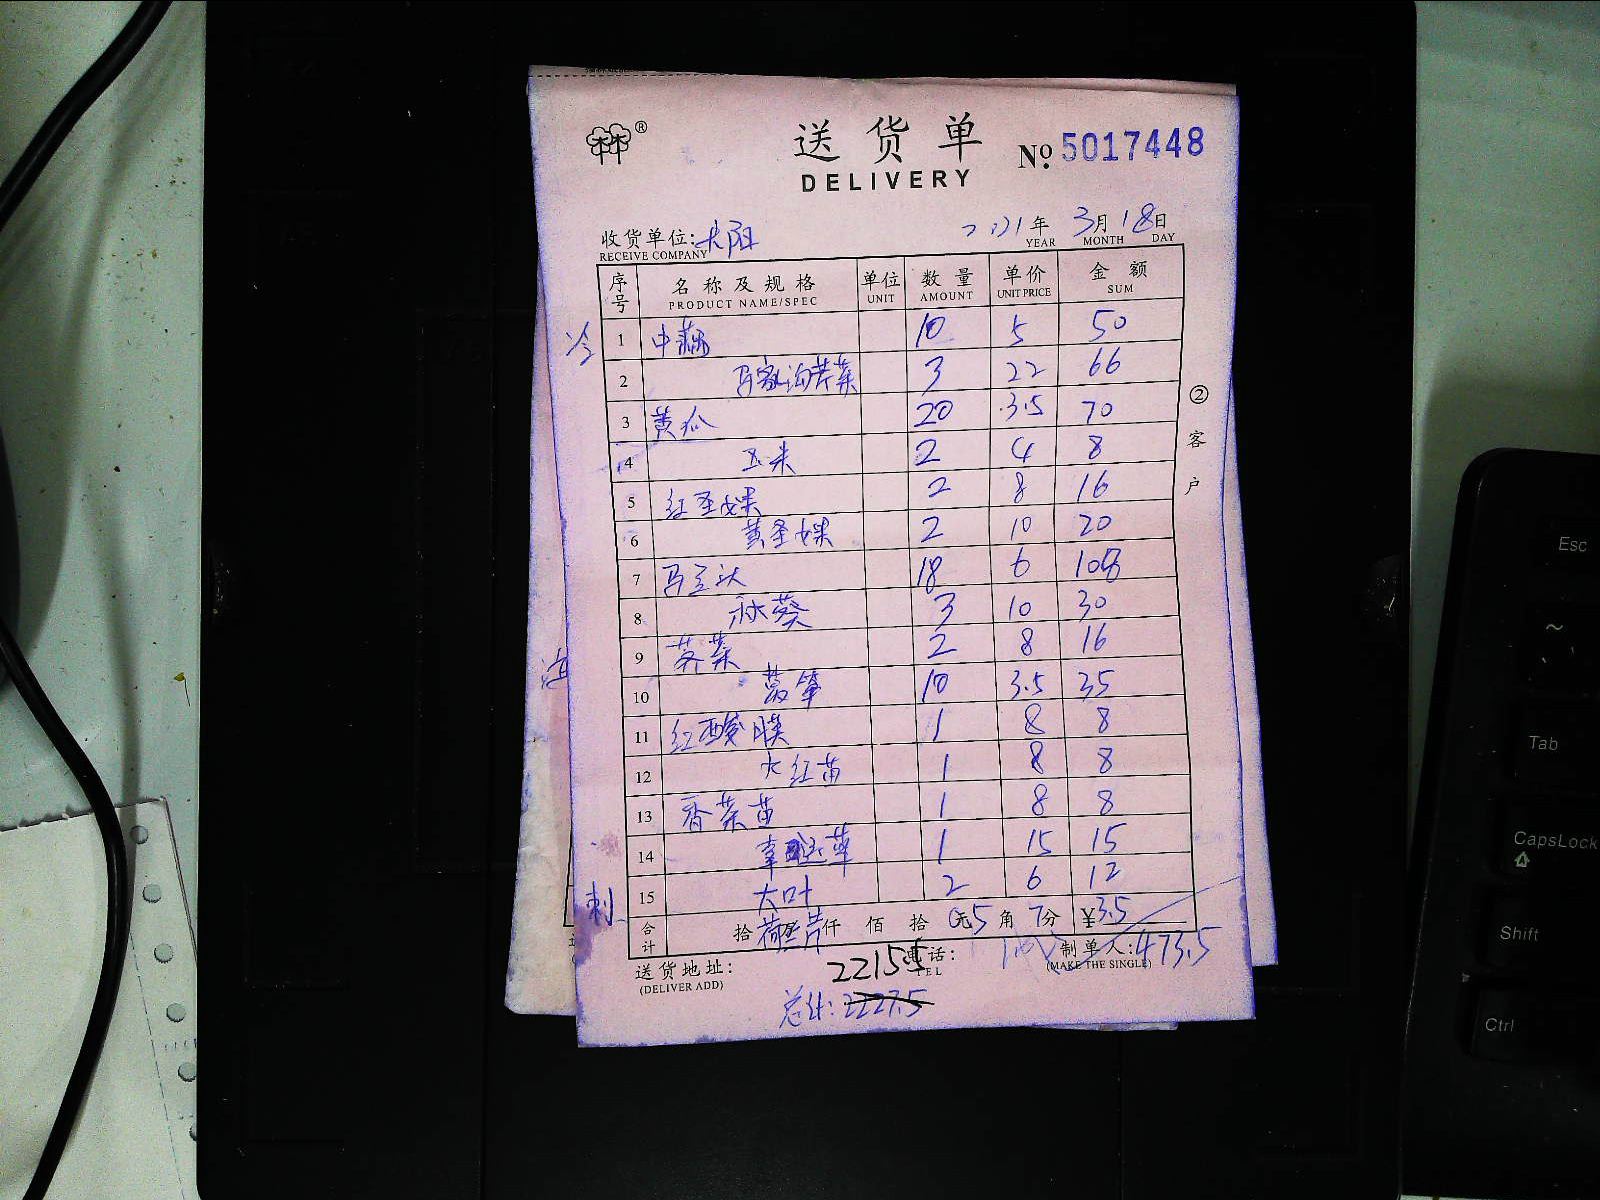 ®
送货单
DELIVERY
No. 5017448
收货单位: 大阳
RECEIVE COMPANY
2021年 3月 18日
YEAR MONTH DAY
序号 名称及规格 单位 数量 单价 金额
PRODUCT NAME/SPEC UNIT AMOUNT UNIT PRICE SUM
冷
1 中藕 10 5 50
2 马家沟芹菜 3 22 66
3 黄瓜 20 3.5 70
4 玉米 2 4 8
5 红圣女果 2 8 16
6 黄圣女果 2 10 20
7 马兰头 18 6 108
8 秋葵 3 10 30
9 荠菜 2 8 16
10 莴笋 10 3.5 35
11 红酸膜 1 8 8
12 火红苗 1 8 8
13 香菜苗 1 8 8
14 1 15 15
刺
15 大叶 2 6 12
合计 拾 仟 佰 拾 元5 角 7分 ¥3.5
②客户
送货地址:
(DELIVER ADD)
电话:
TEL
制单人: 473.5
(MAKE THE SINGLE)
2215.5
总计: 2227.5
Esc
~
Tab
CapsLock
Shift
Ctrl